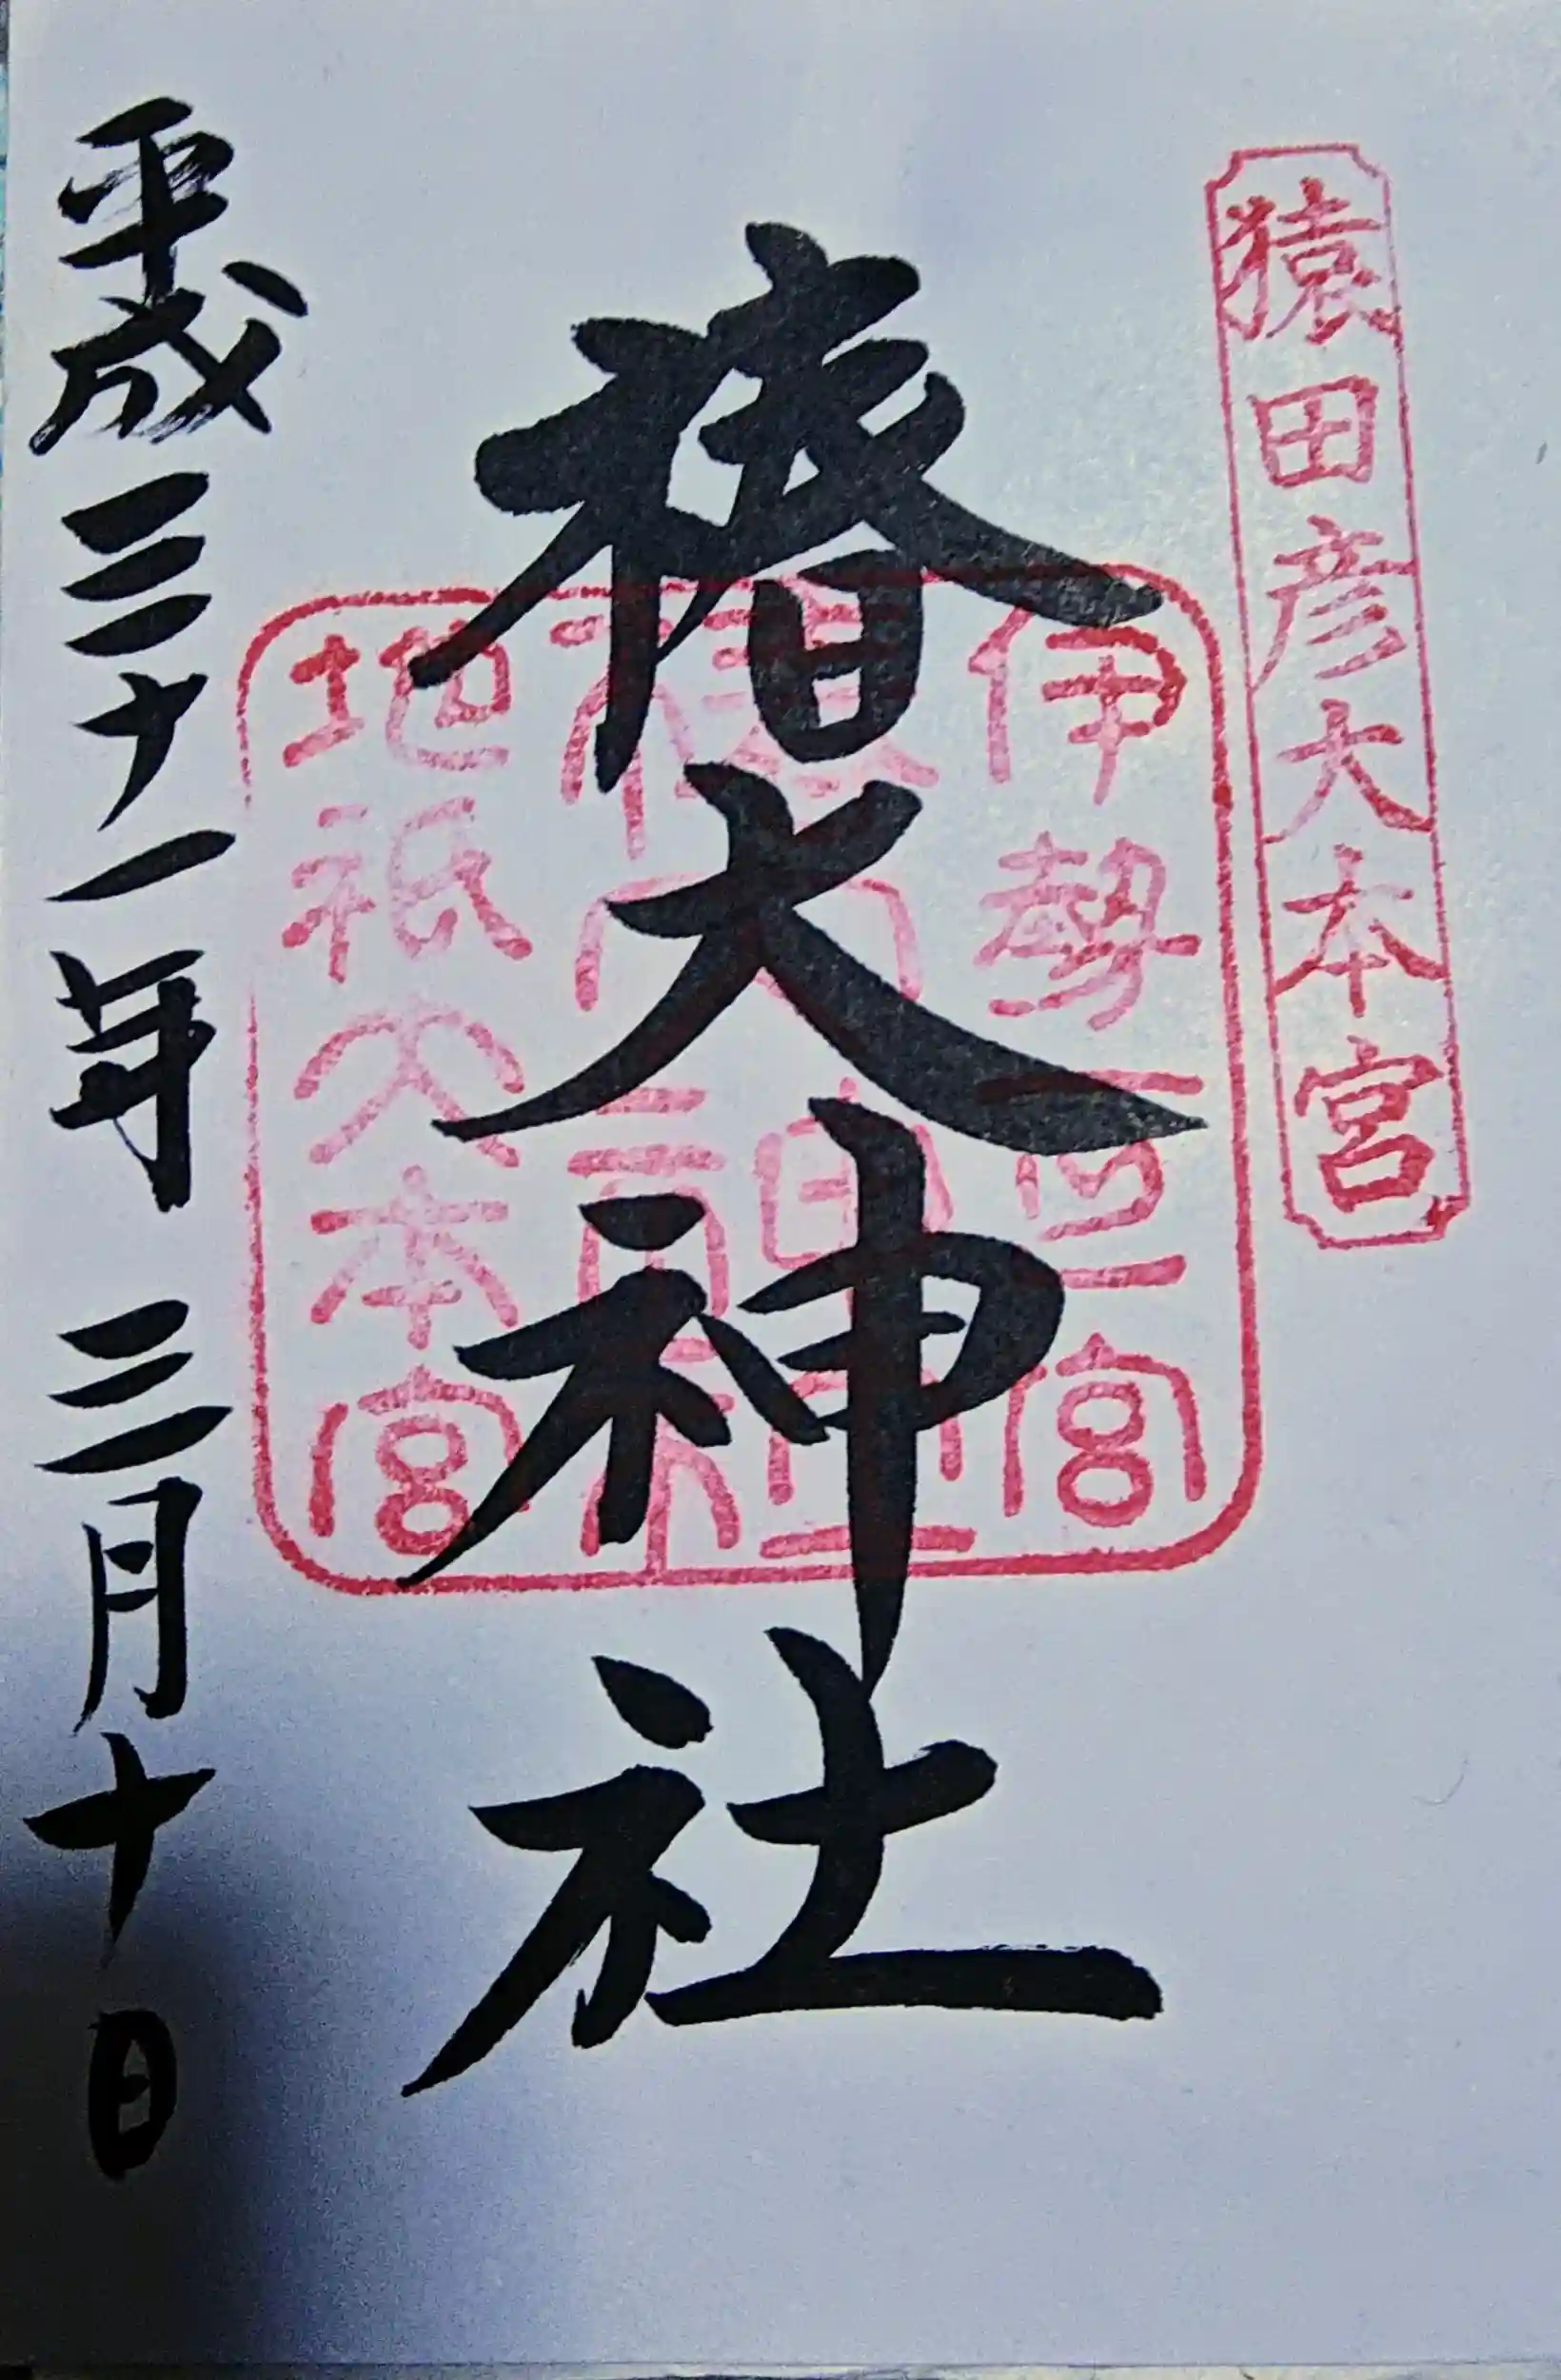 猿田彦大本宮
伊勢一之宮
椿大神社
地祇大本宮
平成三十一年 三月十日